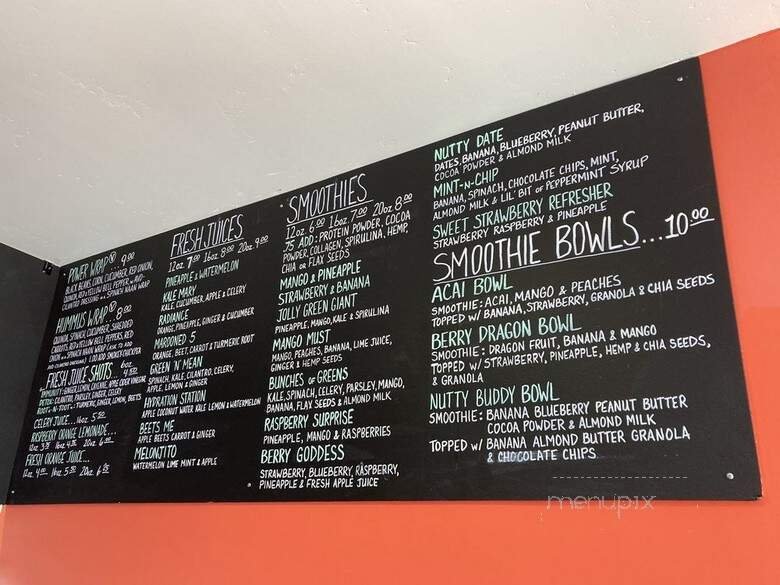 POWER WRAP 9.00
BLACK BEANS, CORN, CUCUMBER, RED ONION,
QUINOA, RED & YELLOW BELL PEPPER w/ AVO-
CILANTRO DRESSING in a SPINACH NAAN WRAP
HUMMUS WRAP 8.00
QUINOA, SPINACH, CUCUMBER, SHREDED
CARROTS, RED & YELLOW BELL PEPPERS, RED
ONION in a SPINACH NAAN WRAP
FRESH JUICE SHOTS
ROOT-N-TOOT: TURMERIC, GINGER, LEMON, BEETS
CELERY JUICE... 16oz 5.50
RASPBERRY ORANGE LEMONADE...
12oz 3.75 16oz 4.50 20oz 6.00
FRESH ORANGE JUICE...
12oz 4.00 16oz 5.50 20oz 6.25
FRESH JUICES
12oz. 7.00 16oz 8.00 20oz. 9.00
PINEAPPLE & WATERMELON
KALE MARY
KALE, CUCUMBER, APPLE & CELERY
RADIANCE
ORANGE, PINEAPPLE, GINGER & CUCUMBER
MAROONED 5
ORANGE, BEET, CARROT & TURMERIC ROOT
GREEN 'N' MEAN
SPINACH, KALE, CILANTRO, CELERY,
APPLE, LEMON & GINGER
HYDRATION STATION
APPLE COCONUT WATER KALE LEMON & WATERMELON
BEETS ME
APPLE BEETS CARROT & GINGER
MELONJITO
WATERMELON LIME MINT & APPLE
SMOOTHIES
12oz. 6.00 16oz. 7.00 20oz 8.00
.75 ADD: PROTEIN POWDER, COCOA
POWDER, COLLAGEN, SPIRULINA, HEMP,
CHIA OR FLAX SEEDS
MANGO & PINEAPPLE
STRAWBERRY & BANANA
JOLLY GREEN GIANT
PINEAPPLE, MANGO, KALE & SPIRULINA
MANGO MUST
MANGO, PEACHES, BANANA, LIME JUICE,
GINGER & HEMP SEEDS
BUNCHES OF GREENS
KALE, SPINACH, CELERY, PARSLEY, MANGO,
BANANA, FLAX SEEDS & ALMOND MILK
RASPBERRY SURPRISE
PINEAPPLE, MANGO & RASPBERRIES
BERRY GODDESS
STRAWBERRY, BLUEBERRY, RASPBERRY,
PINEAPPLE & FRESH APPLE JUICE
NUTTY DATE
DATES, BANANA, BLUEBERRY, PEANUT BUTTER,
COCOA POWDER & ALMOND MILK
MINT-N-CHIP
BANANA, SPINACH, CHOCOLATE CHIPS, MINT,
ALMOND MILK & LIL' BIT OF PEPPERMINT SYRUP
SWEET STRAWBERRY REFRESHER
STRAWBERRY RASPBERRY & PINEAPPLE
SMOOTHIE BOWLS...10.00
ACAI BOWL
SMOOTHIE: ACAI, MANGO & PEACHES
TOPPED w/ BANANA, STRAWBERRY, GRANOLA & CHIA SEEDS
BERRY DRAGON BOWL
SMOOTHIE: DRAGON FRUIT, BANANA & MANGO
TOPPED w/ STRAWBERRY, PINEAPPLE, HEMP & CHIA SEEDS,
& GRANOLA
NUTTY BUDDY BOWL
SMOOTHIE: BANANA BLUEBERRY PEANUT BUTTER
COCOA POWDER & ALMOND MILK
TOPPED w/ BANANA ALMOND BUTTER GRANOLA
& CHOCOLATE CHIPS
menupix